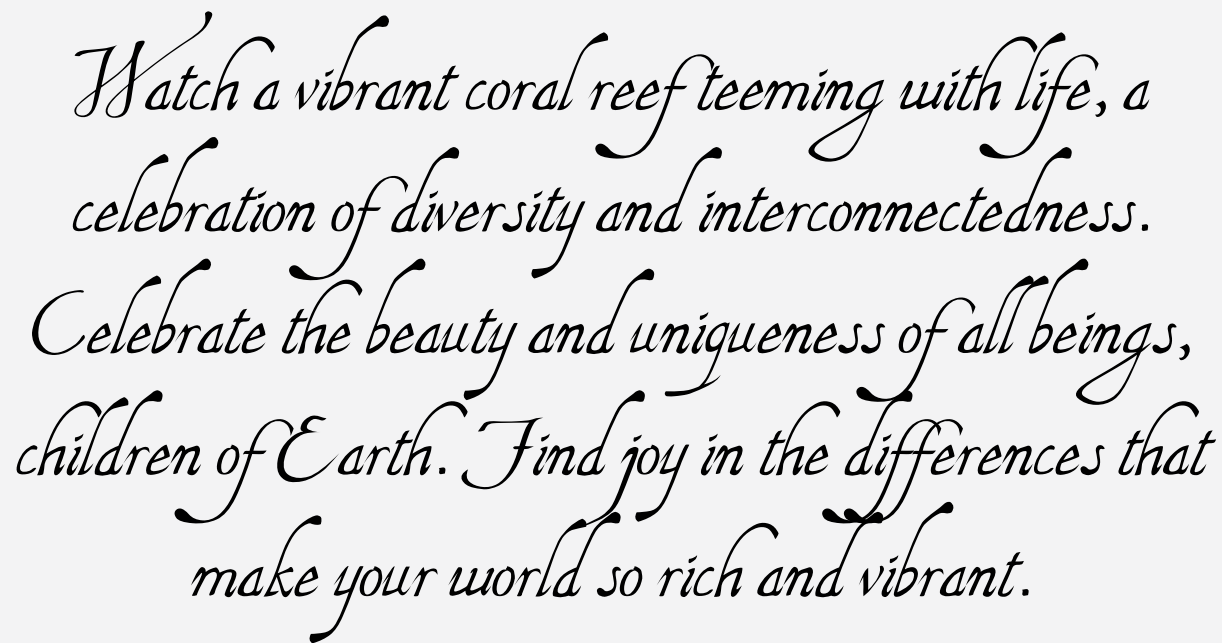 Watch a vibrant coral reef teeming with life, a
celebration of diversity and interconnectedness.
Celebrate the beauty and uniqueness of all beings,
children of Earth. Find joy in the differences that
make your world so rich and vibrant.